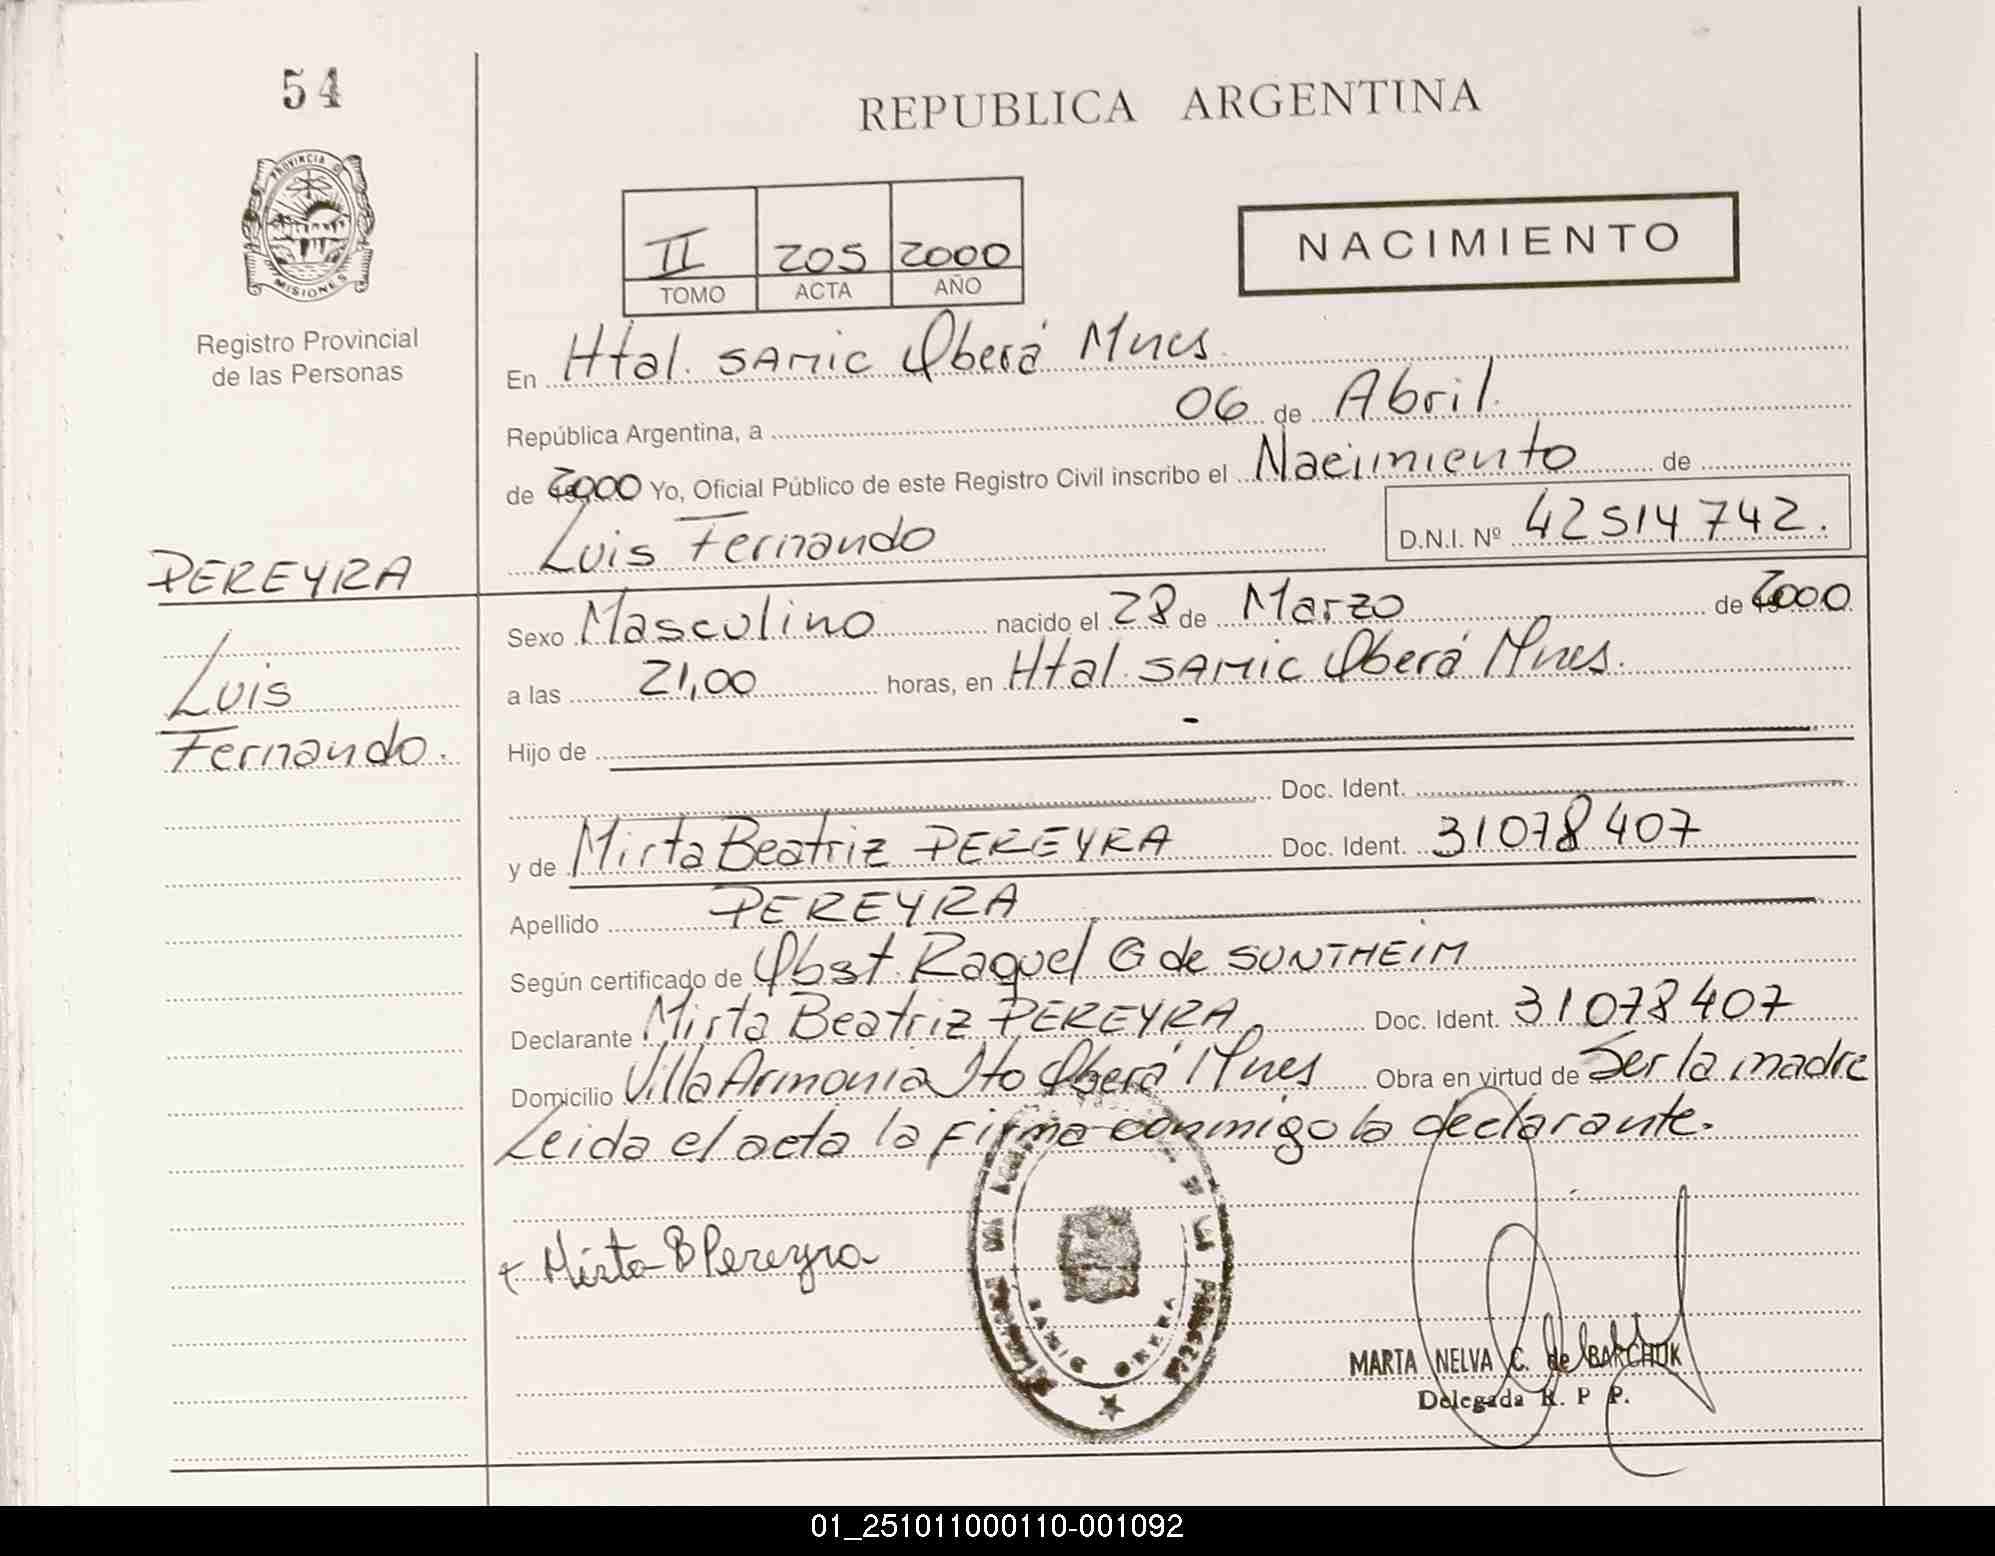 54
REPUBLICA ARGENTINA
PROVINCIA D
MISIONES
Registro Provincial
de las Personas
II 205 2000
TOMO ACTA AÑO
NACIMIENTO
En Htal. SAMIC Oberá Mnes.
República Argentina, a 06 de Abril.
de 2000 Yo, Oficial Público de este Registro Civil inscribo el Nacimiento de
Luis Fernando D.N.I. Nº 42514742.
PEREYRA
Luis
Fernando.
Sexo Masculino nacido el 28 de Marzo de 2000
a las 21,00 horas, en Htal. SAMIC Oberá Mnes.
Hijo de
Doc. Ident.
y de Mirta Beatriz PEREYRA Doc. Ident. 31078407
Apellido PEREYRA
Según certificado de Obst. Raquel G de SUNTHEIM
Declarante Mirta Beatriz PEREYRA Doc. Ident. 31078407
Domicilio Villa Armonia Sto Oberá Mnes Obra en virtud de Ser la madre
Leida el acta la firma conmigo la declarante.
Mirta B Pereyra
SAMIC OBERA
MARTA NELVA C. de BARCHUK
Delegada R. P P.
01_251011000110-001092